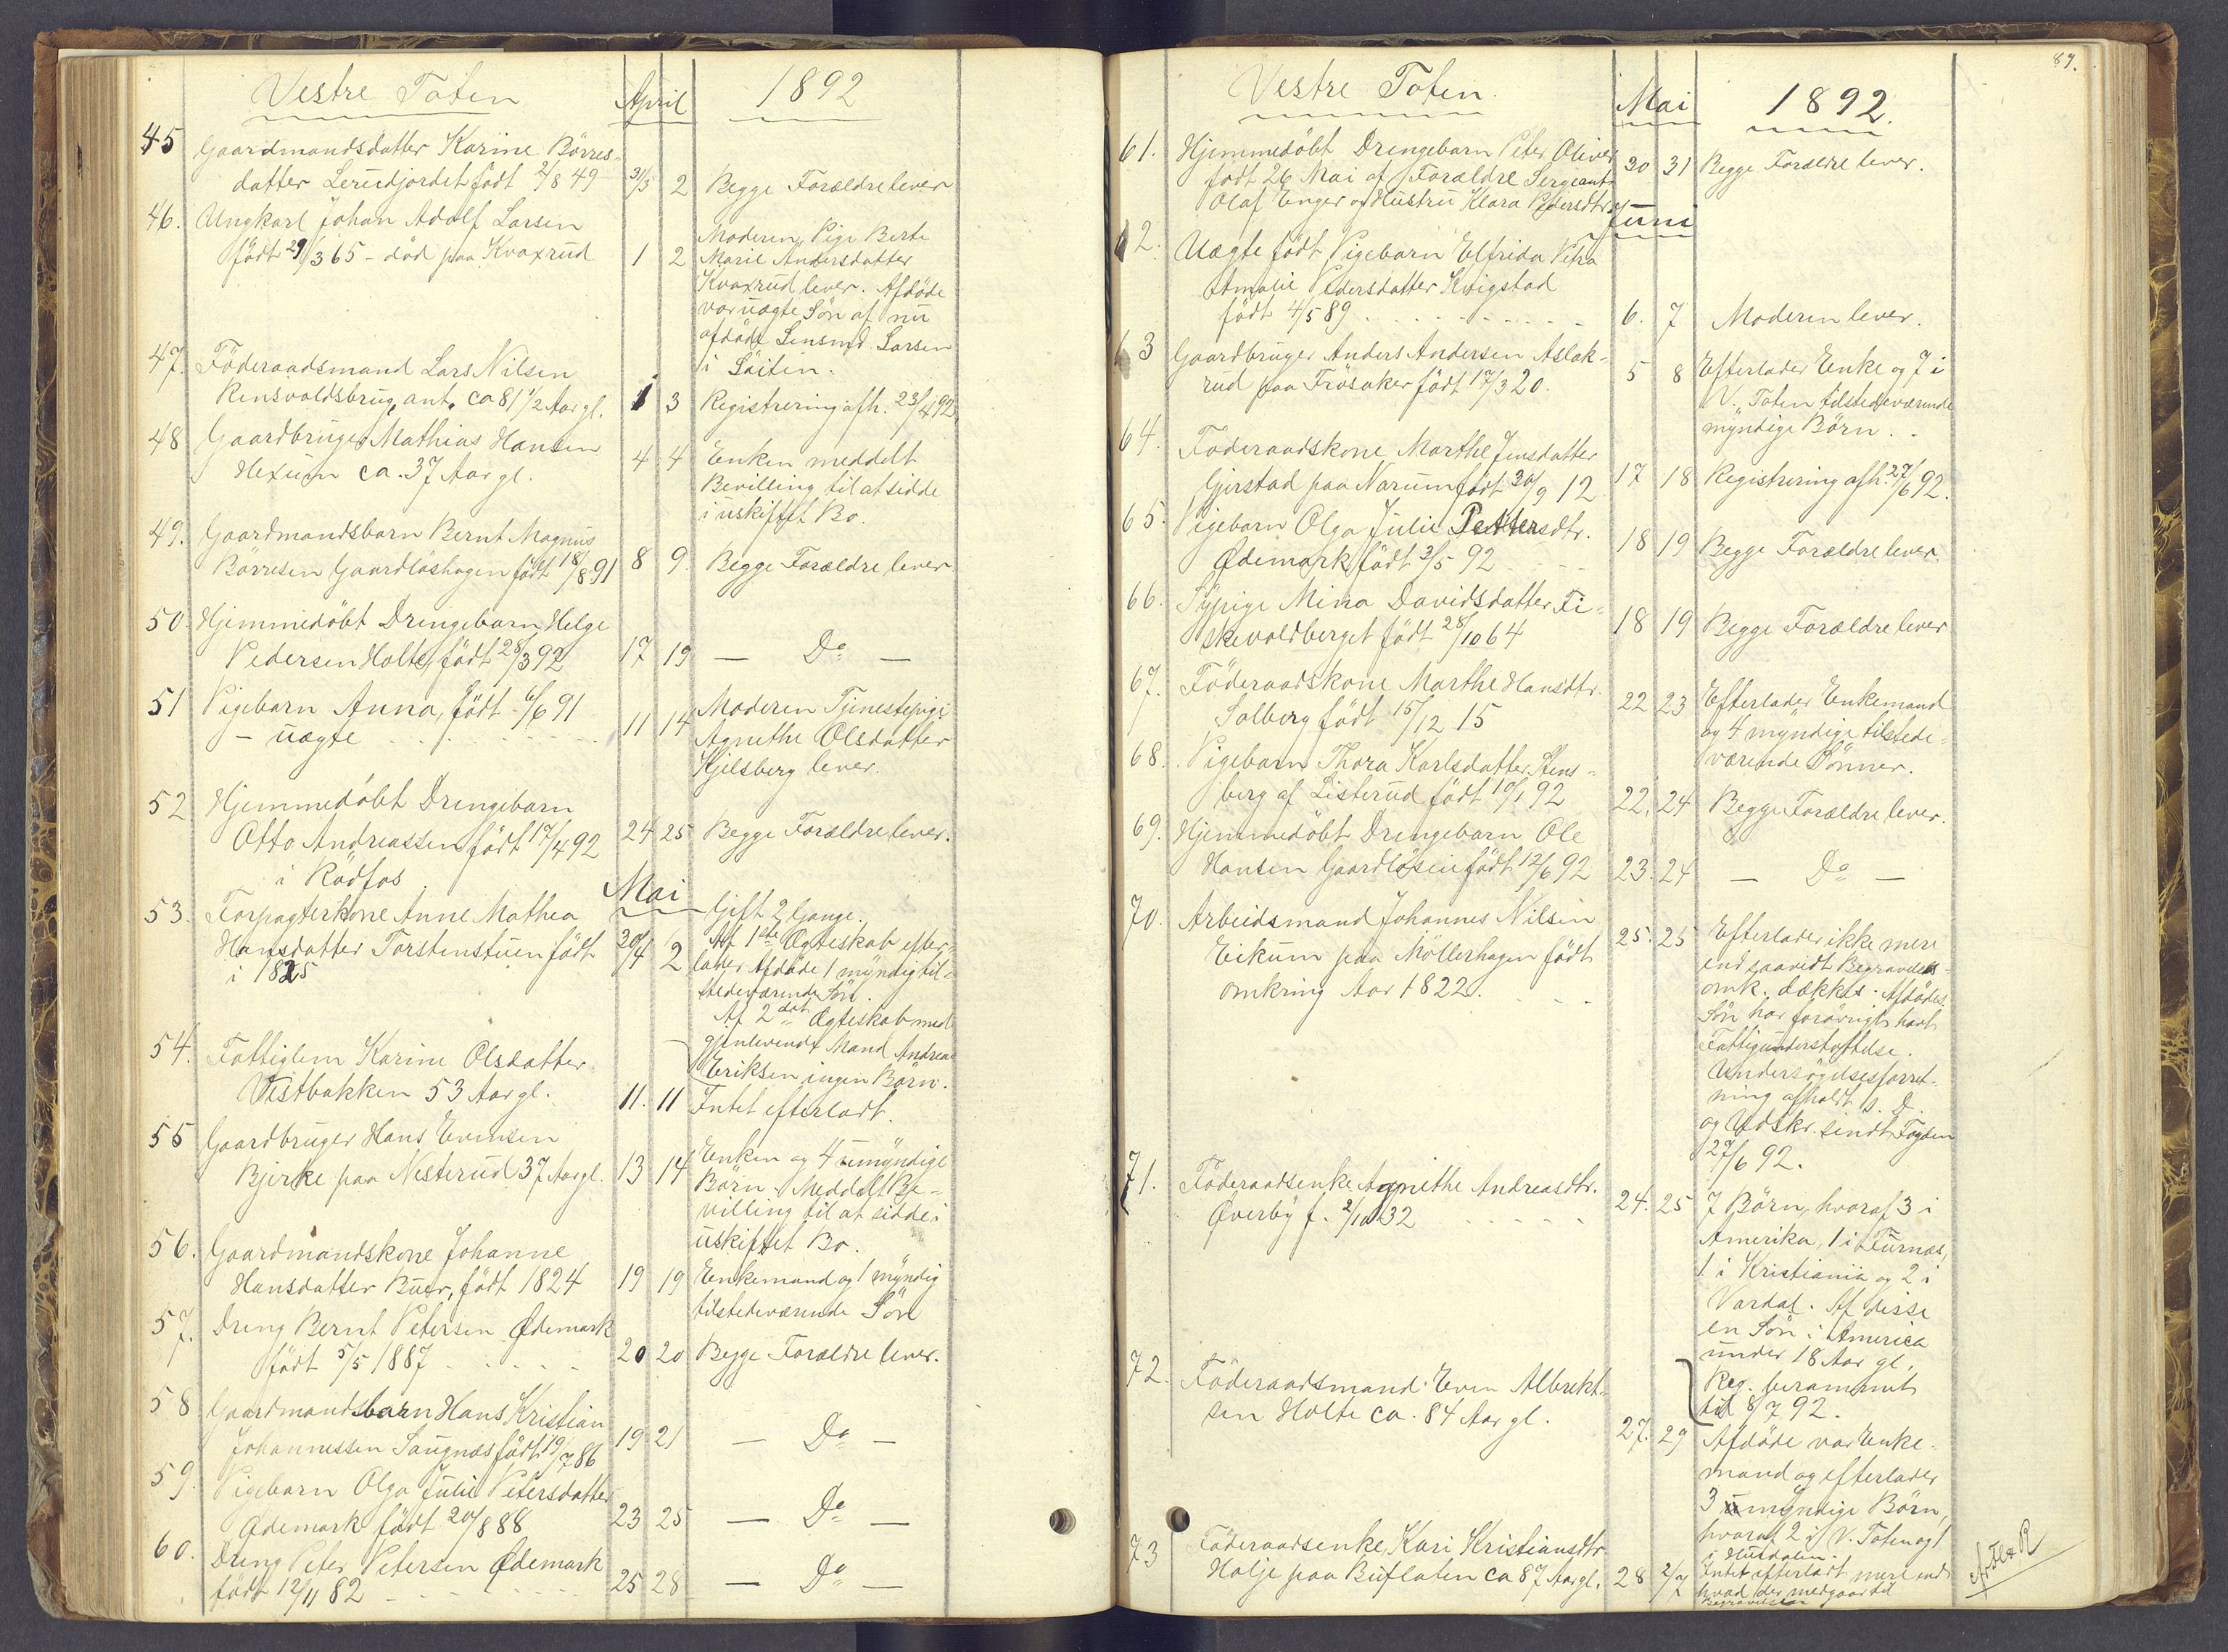 Vestre Toten
April
1892
45 Gaardmandsdatter Karine Börres-
datter Lerudjordet født 2/8 49 31/3 2 Begge Forældre lever
46. Ungkarl Johan Adolf Larsen
født 29/3 65 - død paa Kvaxrud 1 2
Moderen, Pige Berte
Marie Andersdatter
Kvaxrud lever. Afdöde
var uægte Søn af nu
afdøde Lensmd. Larsen
i Söiten.
47. Föderaadsmand Lars Nilsen
Rensvoldsbrug, ant. ca 81 1/2 Aar gl. 1 3 Registrering afh. 23/4 92
48 Gaardbruger Mathias Hansen
Hexum ca. 37 Aar gl. 4 4
Enken meddelt
Bevilling til at sidde
i uskiftet Bo.
49. Gaardmandsbarn Bernt Magnus
Börresen Gaardløshagen født 18/8 91 8 9. Begge Forældre lever
50. Hjemmedöbt Drengebarn Helge
Pedersen Holte, født 28/3 92 17 19 — Do —
51 Pigebarn Anna, født 6/6 91
- uægte 11 14
Moderen Tjenestepige
Agnethe Olsdatter
Kjelsberg lever.
52 Hjemmedöbt Drengebarn
Otto Andreassen født 17/4 92 24 25 Begge Forældre lever.
i Rödfos
Mai
53. Forpagterkone Anne Mathea
Hansdatter Torstenstuen født 30/4 2
i 1825
Gift 2 Gange.
Af 1ste Ægteskab efter-
lader Afdøde 1 myndig til-
stedeværende Søn.
Af 2det Ægteskab med
gjenlevende Mand Andreas
Eriksen ingen Børn.
54. Fattiglem Karine Olsdatter
Vestbakken 53 Aar gl. 11. 11 Intet efterladt.
55 Gaardbruger Hans Evensen
Bjirke paa Nesterud 37 Aar gl. 13 14
Enken og 4 umyndige
Børn. Meddelt Be-
villing til at sidde i
uskiftet Bo.
56. Gaardmandskone Johanne
Hansdatter Buer, født 1824 19 19
Enkemand og 1 myndig
tilstedeværende Søn
57. Dreng Bernt Petersen Ødemark
født 5/5 1887 20 20 Begge Forældre lever.
58 Gaardmandsbarn Hans Kristian
Johannessen Saugnæs født 19/7 86 19 21 — Do —
59. Pigebarn Olga Julie Petersdatter
Ødemark født 20/8 88 23 25 — Do —
60. Dreng Peter Petersen Ødemark
født 12/11 82 25 28 — Do —
89.
Vestre Toten.
Mai
1892.
61. Hjemmedöbt Drengebarn Peter Oliver
født 26 Mai af Forældre Sergeant
Olaf Enger og Hustru Klara Pedersdtr. 30 31 Begge Forældre lever.
Juni
62. Uægte født Pigebarn Elfrida Petra
Amalie Pedersdatter Kvigstad
født 4/5 89 6. 7 Moderen lever.
63 Gaardbruger Anders Andersen Aslak-
rud paa Frösaker født 17/3 20. 5 8
Efterlader Enke og 7 i
V. Toten tilstedeværende
myndige Börn.
64. Föderaadskone Marthe Jensdatter
Gjerstad paa Narum født 30/9 12 17 18 Registrering afh. 27/6 92.
65. Pigebarn Olga Julie Pettersdtr.
Ødemark født 3/5 92 18 19 Begge Forældre lever.
66. Sypige Mina Davidsdatter Fi-
skevoldberget født 28/10 64 18 19 Begge Forældre lever
67. Föderaadskone Marthe Hansdtr.
Solberg født 15/12 15 22 23
Efterlader Enkemand
og 4 myndige tilstede-
værende Sönner.
68. Pigebarn Thora Karlsdatter Stens-
berg af Listerud født 10/1 92 22. 24 Begge Forældre lever.
69. Hjemmedöbt Drengebarn Ole
Hansen Gaardløseie født 12/6 92 23. 24 — Do —
70. Arbeidsmand Johannes Nilsen
Eikum paa Möllerhagen født
omkring Aar 1822. 25. 25
Efterlader ikke mere
end saavidt Begravelses-
omk. dækkes. Afdødes
Søn har forøvrigt havt
Fattigunderstøttelse.
Undersøgelsesforret-
ning afholdt s. D.
og Udskr. sendt Fogden
27/6 92.
71. Föderaadsenke Agnithe Andreasdtr.
Øverby f. 2/10 32 24. 25
7 Börn, hvoraf 3 i
Amerika, 1 i Furnæs,
1 i Kristiania og 2 i
Vardal. Af disse
en Søn i America
under 18 Aar gl.
Reg. berammet
til 8/7 92.
72. Föderaadsmand Even Albrekt-
sen Holte ca. 84 Aar gl. 27. 29
Afdöde var Enke-
mand og efterlader
3 myndige Börn,
hvoraf 2 i V. Toten og 1
i Hurdalen.
73 Föderaadsenke Kari Kristiansdtr.
Holje paa Buflaten ca 87 Aar gl. 28 2/7
Intet efterladt mere end
hvad der medgaar til
Begravelsen